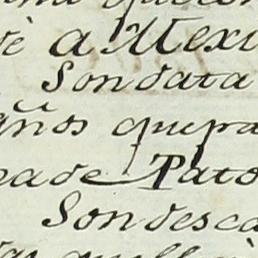 è a Mexi
Son data
años que pa
ade Pato
Son desca